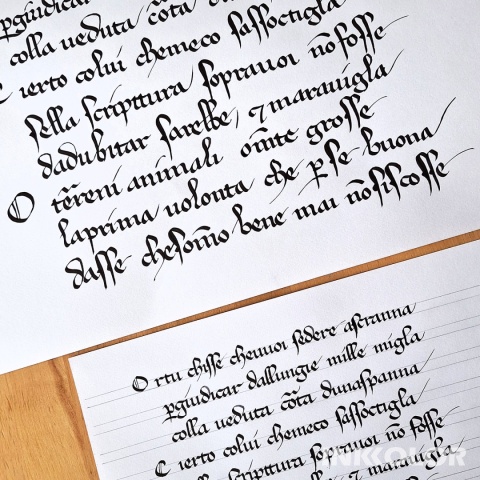 pgiudicar
colla ueduta cōta
C ierto colui chemeco sassoctigla
sella scripttura soprauoi nō fosse
dadubitar sarebbe, ⁊ marauigla
O tēreni animali grosse
laprima uolonta che ꝑ se buona
dasse chesōmo bene mai nōsiscosse
O rtu chisse cheuuoi sedere ascranna
ꝑgiudicar dallungie mille migla
colla ueduta cōta dunaspanna
C ierto colui chemeco sassoctigla
sella scripttura soprauoi nō fosse
⁊ marauigla
INKKOLOR